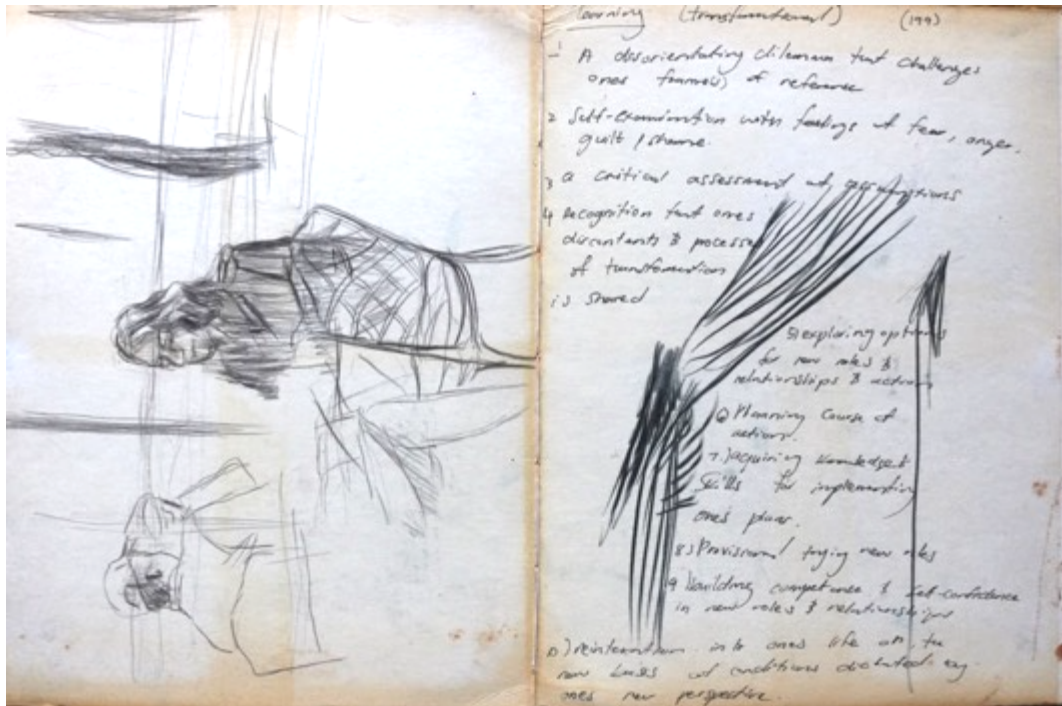 learning (transformational) (199)
1 A disorientating dilemma that challenges
ones frame(s) of reference
2 Self-examination with feelings of fear, anger,
guilt / shame.
3 a critical assessment of assumptions
4 Recognition that ones
discontents & processes
of transformation
is shared
5) exploring options
for new roles &
relationships & actions
6) Planning Course of
action.
7.) acquiring knowledge &
Skills for implementing
one's plans.
8) Provisional trying new roles
9 building competence & self-confidence
in new roles & relationships
10) reintegration into ones life on the
new basis of conditions dictated by
ones new perspective.